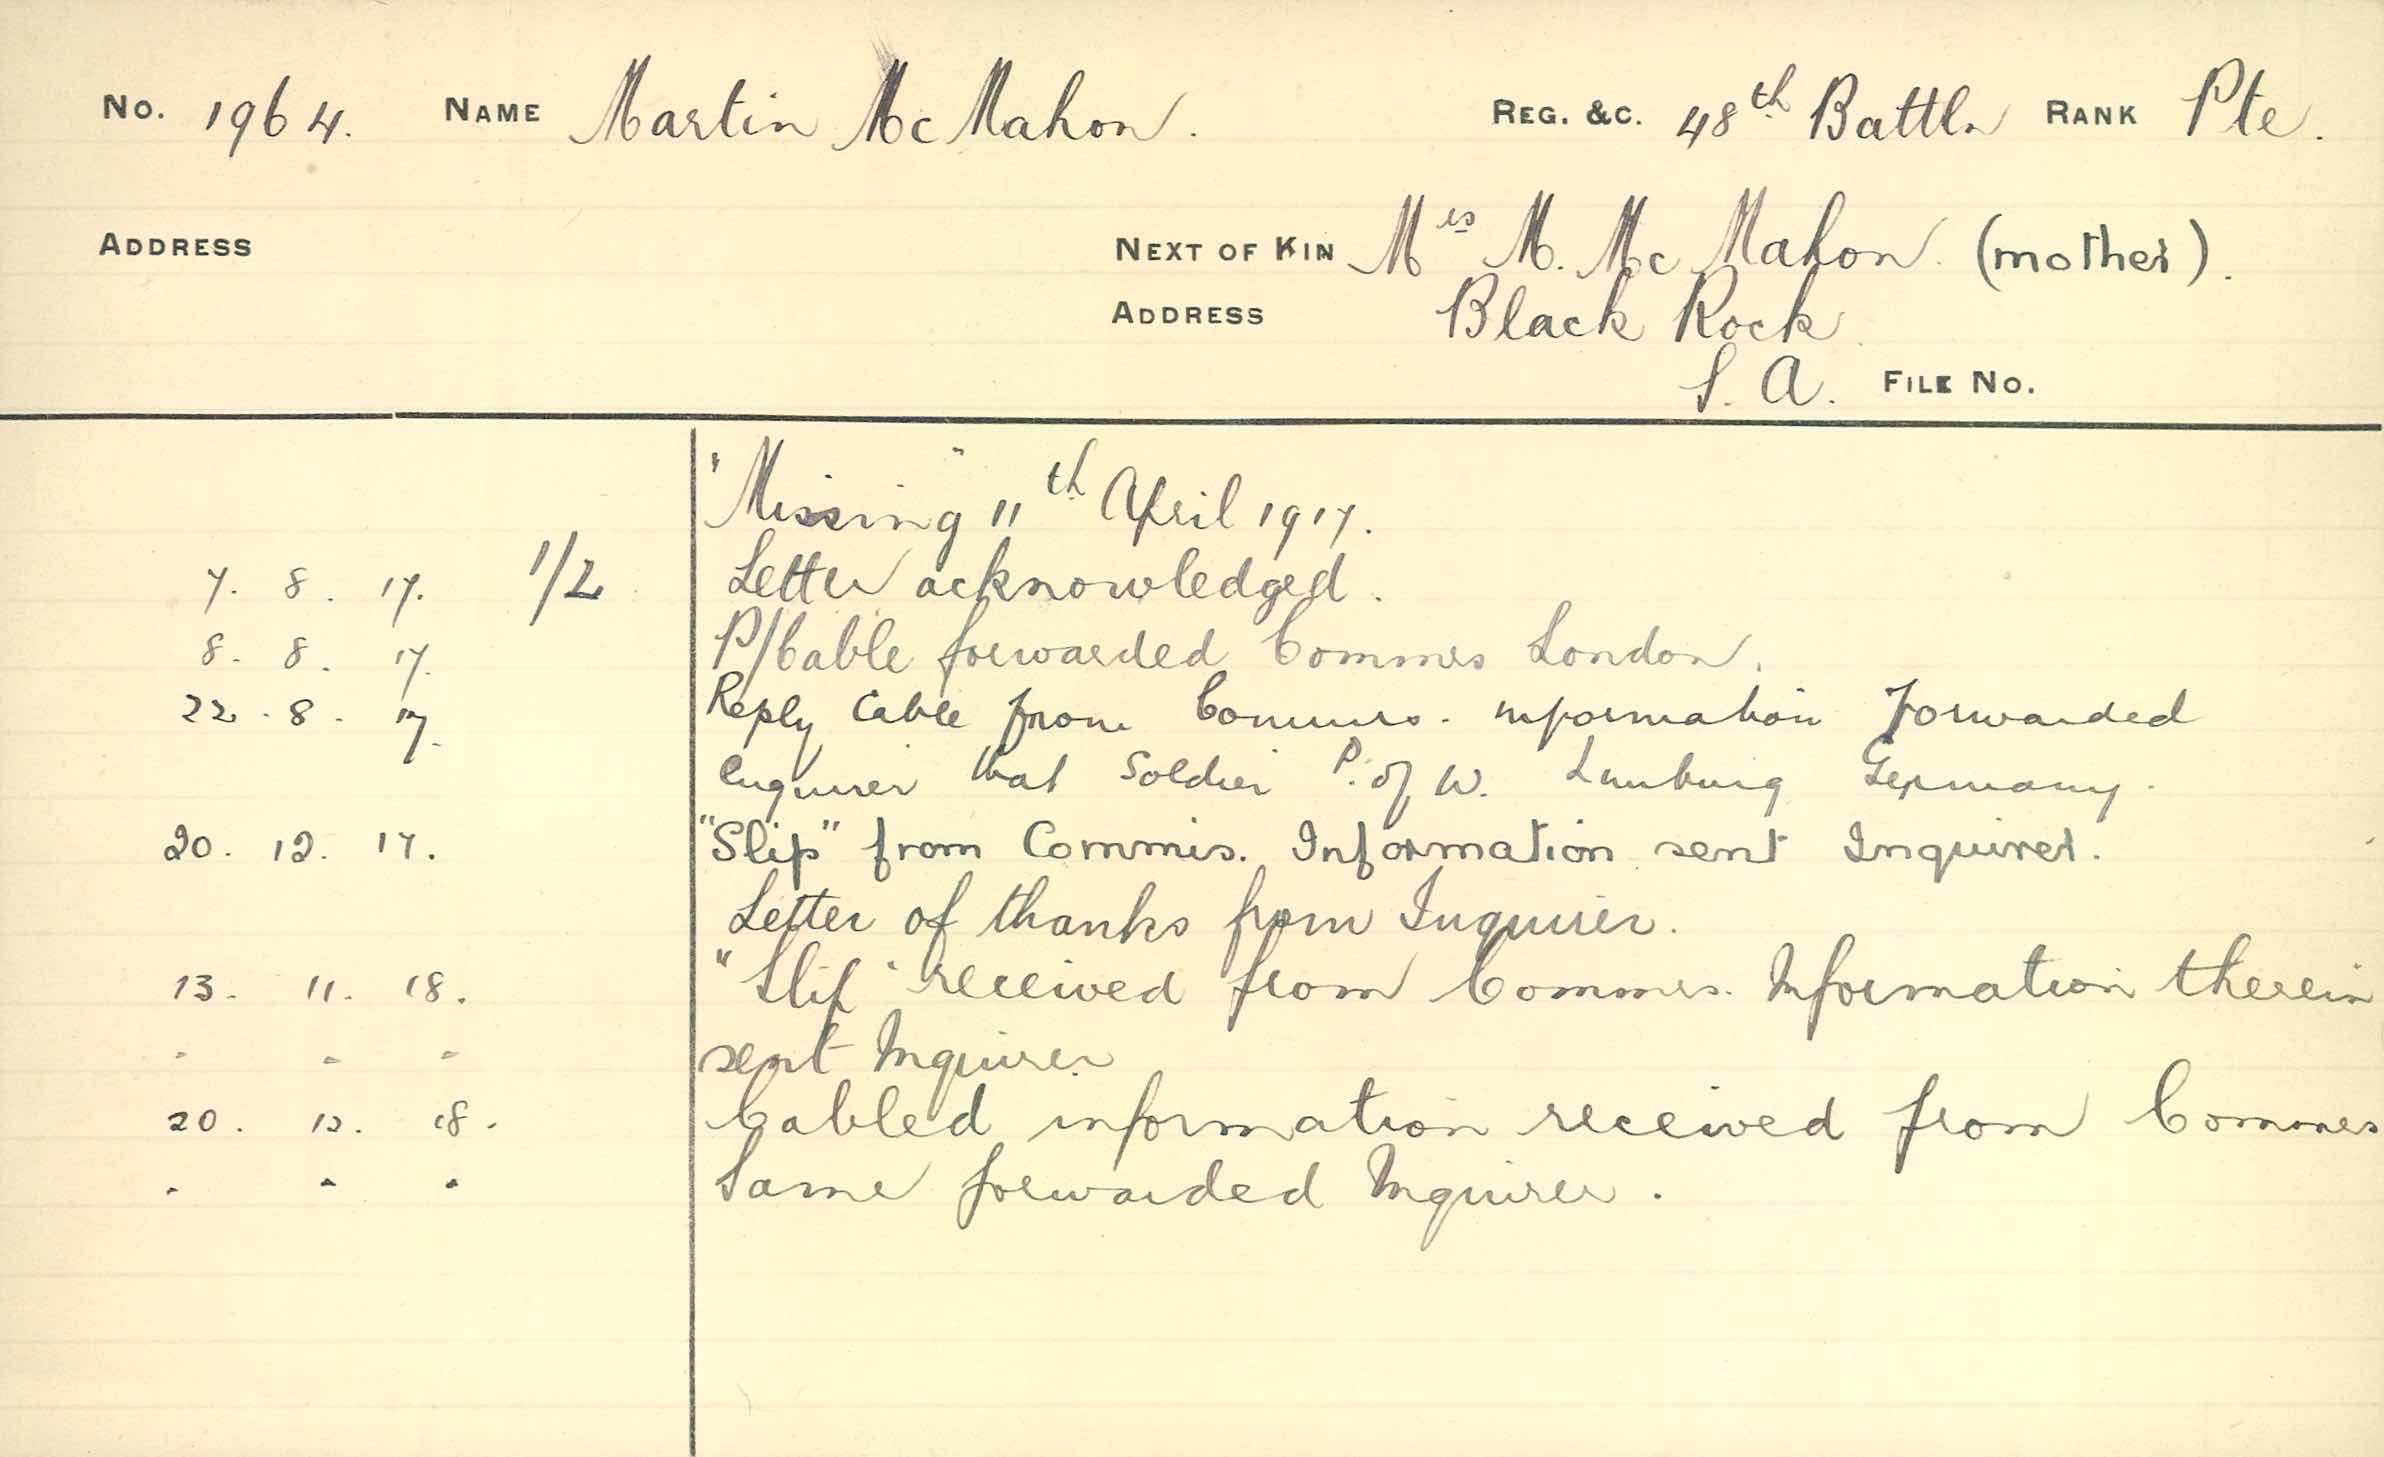 No. 1964. NAME Martin McMahon. REG. &C. 48th Battln RANK Pte.
ADDRESS NEXT OF KIN Mrs M. McMahon. (mother).
ADDRESS Black Rock
S. A. FILE No.
"Missing" 11th April 1917.
7. 8. 17. 1/2 Letter acknowledged.
8. 8. 17. P/Cable forwarded Commrs London.
22. 8. 17. Reply Cable from Commrs. information Forwarded
Enquirer that Soldier P. of W. Limburg Germany.
20. 12. 17. "Slip" from Commis. Information sent Inquirer.
Letter of thanks from Inquirer.
13. 11. 18. "Slip" received from Commrs. Information therein
" " " sent Inquirer
20. 12. 18. Cabled information received from Commrs
" " " Same forwarded Inquirer.